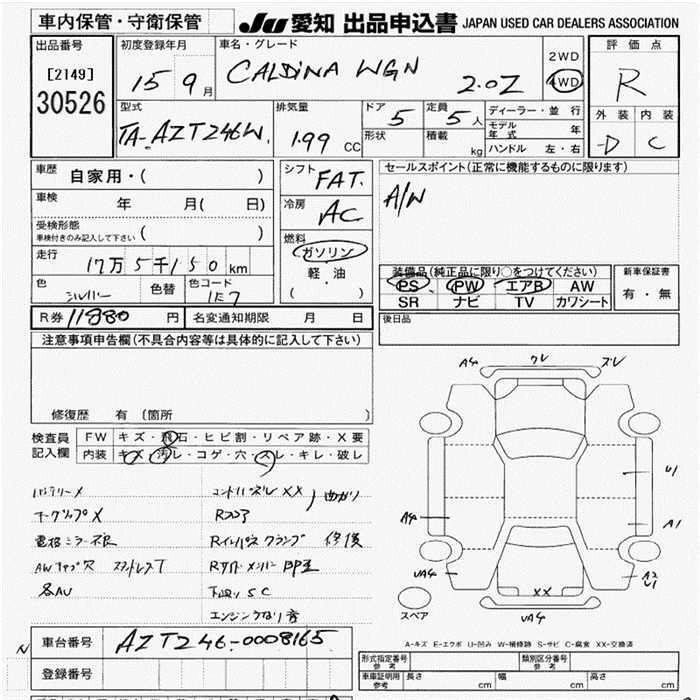 車内保管・守衛保管
JU 愛知 出品申込書 JAPAN USED CAR DEALERS ASSOCIATION
出品番号
[2149]
30526
初度登録年月
15 9月
車名・グレード
CALDINA WGN 2.0Z
2WD
4WD
評価点
R
外装 内装
D C
型式
TA-AZT246W
排気量
1.99 CC
ドア 5
形状
定員 5人
積載 kg
ディーラー・並行
モデル年式 年
ハンドル 左・右
車歴
自家用・( )
車検 年 月( 日)
受検形態
車検付きのみ記入して下さい ( )
走行
17万5千150km
色 シルバー
色替
色コード
1E7
シフト FAT
冷房 AC
燃料
ガソリン
軽・油
( )
セールスポイント(正常に機能するものに限ります)
A/W
装備品(純正品に限り○をつけてください)
PS PW エアB AW
SR ナビ TV カワシート
新車保証書
有・無
R券 11880 円
名変通知期限 月 日
後日品
注意事項申告欄(不具合内容等は具体的に記入して下さい)
修復歴 有 〔箇所 〕
検査員
記入欄
FW キズ・飛石・ヒビ割・リペア跡・X要
内装 キズ・汚レ・コゲ・穴・スレ・キレ・破レ
バッテリーX
電格ミラー不良
エンジン 音
A4 クレ ズレ
U1
A4
A1
UA4
A2
U1
XX
UA4
スペア
A-キズ E-エクボ U-凹み W-補修跡 S-サビ C-腐食 XX-交換済
車台番号
AZT246-0008165
登録番号
N
形式指定番号
参考
類別区分番号
参考
車庫証明
参考
長さ cm
幅 cm
高さ cm